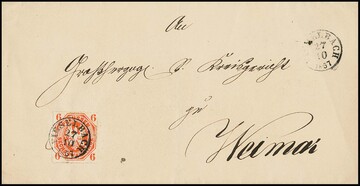 An
Großherzogl. S. Kreisgericht
zu
Weimar
27
10
6 6
27
10
6 6